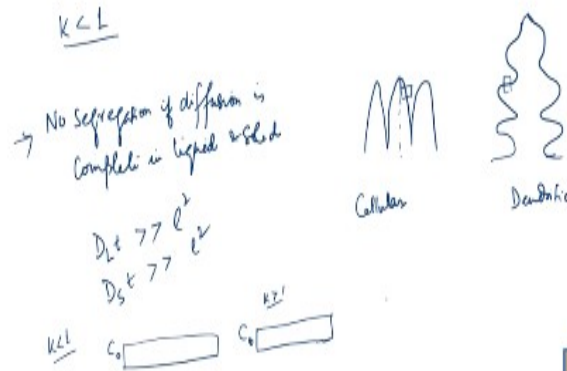 K < 1
→ No segregation if diffusion is
complete in liquid & solid
D_L t >> l²
D_s t >> l²
Cellular
Dendritic
K<1 C₀
K>1 C₀